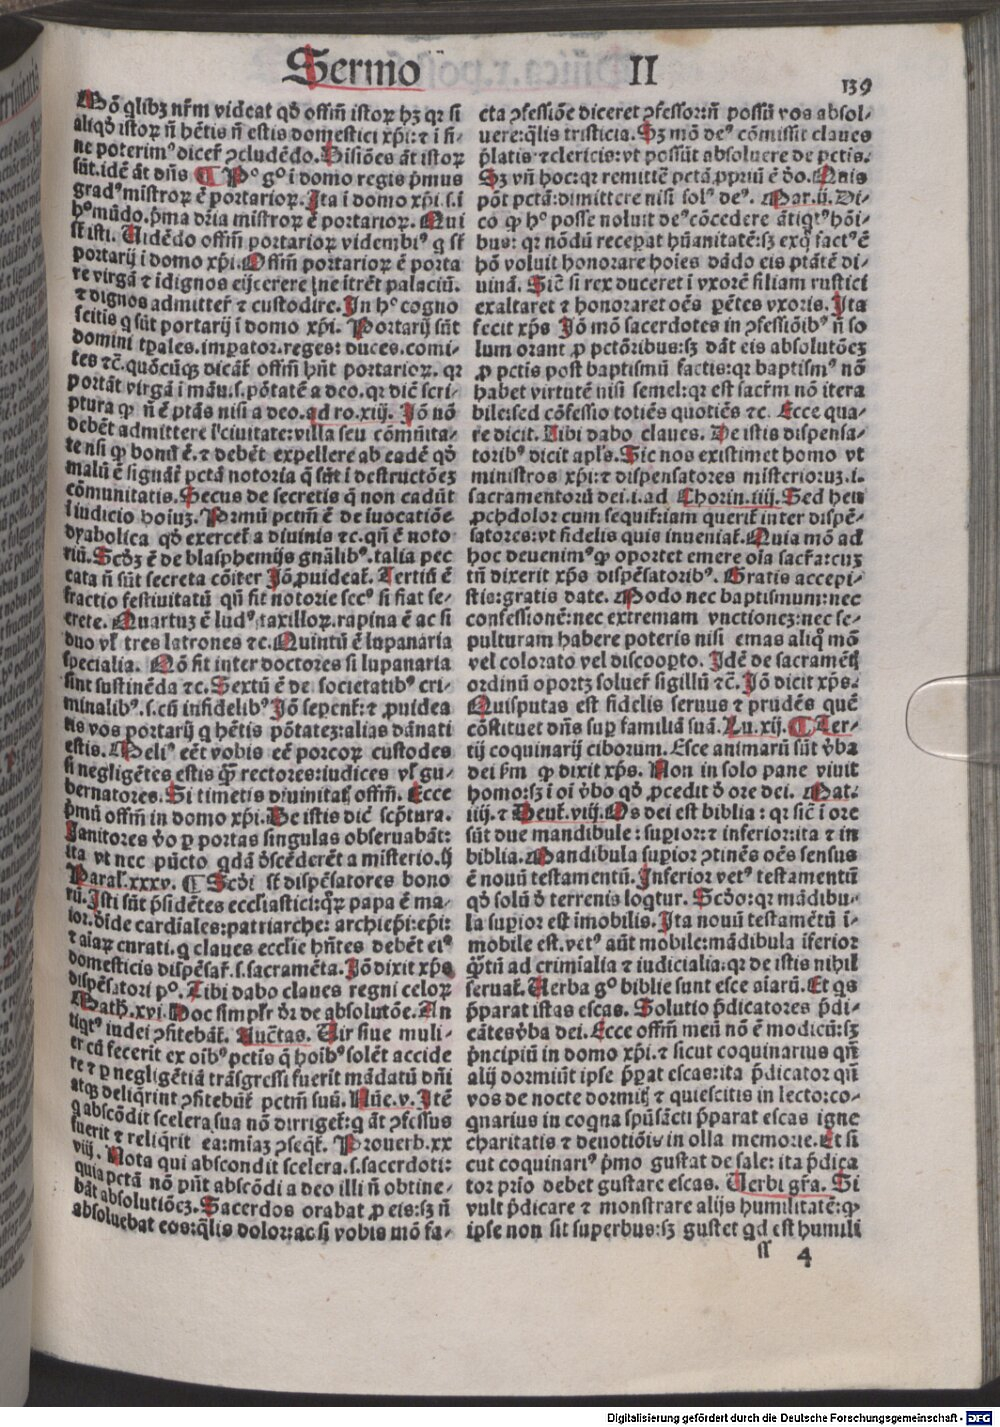 Sermo II 139
Mõ qlibꝫ nr̃m videat qđ offm̃ istoꝝ hꝫ qꝛ si
aliqđ istoꝝ ñ hẽtis ñ estis domestici xp̃i: ⁊ i fi-
ne poterimꝰ dicer̃ ꝯcludẽdo. Uisiões ãt istoꝝ
sũt. idẽ ãt dñs ¶ Pº gº i domo regis p̃mus
gradꝰ mĩstroꝝ ẽ portarioꝝ. Ita i domo xp̃i. s. i
hº mũdo. p̃ma dr̃ia mĩstroꝝ ẽ portarioꝝ. Qui
st̃ isti. Uidẽdo offm̃ portarioꝝ vidembiꝰ q st̃
portarij i domo xp̃i. Offm̃ portarioꝝ ẽ porta
re virgã ⁊ ĩdignos eijcerere ⁊ne ĩtrẽt palaciũ.
⁊ dignos admitter̃ ⁊ custodire. In hº cogno
scitis q sũt portarij i domo xp̃i. Portarij sũt
domini tꝑales. imꝑator. reges: duces. comi-
tes ⁊c̃. quõcũqꝫ dicãt̃ offm̃ hñt portarioꝝ. qꝛ
portãt virgã i mãu. s. põtatẽ a deo. qꝛ diẽ scri-
ptura ꝙ ñ ẽ ptãs nisi a deo. ad ro. xiij. Iõ nõ
debẽt admittere i ciuitate: villa seu cõmũita-
te nsi ꝙ bonũ ẽ. ⁊ debẽt expellere ab eadẽ qđ
malũ ẽ signãt̃ pctã notoria q̃ sũt i destructõeꝫ
cõmunitatis. Secus de secretis q̃ non cadũt
i iudicio hoiuꝫ. Prĩmũ pctm̃ ẽ de iuocatiõe
dyabolica qđ exercet̃ a diuinis ⁊c. qñ ẽ noto
riũ. Scđꝫ ẽ de blasphemijs gnãlibꝰ. talia pec
cata ñ sũt secreta cõiter Iõ ꝓuideat̃. Tertiũ ẽ
fractio festiuitatũ qñ fit notorie secꝰ si fiat se-
crete. Quartuꝫ ẽ ludꝰ ⁊taxilloꝝ. rapina ẽ ac si
duo vl̃ tres latrones ⁊c. Quintũ ẽ lupanaria
specialia. Nõ fit inter doctores si lupanaria
sint sustinẽda ⁊c. Sextũ ẽ de societatibꝰ cri-
minalibꝰ. s. cũ infidelibꝰ Iõ seꝑent̃: ⁊ ꝓuidea
tis vos portarij q hẽtis põtateꝫ: alias dãnati
estis. Meliꝰ eẽt vobis eẽ porcoꝝ custodes
si negligẽtes estis q̃ꝫ rectores: iudices vl̃ gu-
bernatores. Si timetis diuinitat̃ offm̃. Ecce
p̃mũ offm̃ in domo xp̃i. De istis diẽ scp̃tura.
Ianitores ṽo ꝑ portas singulas obseruabãt:
ita vt nec pũcto qdã đscẽderẽt a misterio. ij
Paral̃. xxxv. ¶ Scđi st̃ dispẽsatores bono
rũ. Isti sũt p̃sidẽtes ecclīastici: qꝝ papa ẽ ma-
ior. đĩde cardĩales: patriarche: archiep̃i: ep̃i:
⁊ aĩaꝝ curati. q claues ecclīe hñtes debẽt eiꝰ
domesticis dispẽsar̃. s. sacramẽta. Iõ dixit xp̃s
dispẽsatori pº. Tibi dabo claues regni celoꝝ
Math̃. xvi. Hoc simpl̃r đr de absolutõe. An
tiqtꝰ iudei ꝯfitebãt̃. Auc̃tas. Uir siue muli-
er cũ fecerit ex oĩbꝰ pctis q̃ hoĩbꝰ solẽt accide
re ⁊ ꝑ negligẽtiã trãsgressi fuerit mãdatũ dñi
atqꝫ deliq̃rint ꝯfitebũt̃ pctm̃ suũ. Nũe. v. Itẽ
q abscõdit scelera sua nõ dirriget̃: q ãt ꝯfessus
fuerit ⁊ reliq̃rit ea: miaꝫ ꝯseqt̃. Prouerb. xx
viij. Nota qui abscondit scelera. s. sacerdoti:
quia pctã nõ pñt abscõdi a deo illi ñ obtine-
bãt absolutiõeꝫ. Sacerdos orabat ꝓ eis: sꝫ ñ
absoluebat eos: q̃lis dolor: ac sj vobis mõ fa-
cta ꝯfessiõe diceret ꝯfessor: ñ possũ vos absol-
uere: q̃lis tristicia. Sꝫ mõ deꝰ cõmissit claues
p̃latis ⁊clericis: vt possũt absoluere de pctis.
Sꝫ vñ hoc: qꝛ remittiẽ pctã ꝓpriũ ẽ đo. Quis
põt pctã: dimittere nisi solꝰ deꝰ. Mar. ij. Di-
co ꝙ hº posse noluit deꝰ cõcedere ãtiqtꝰ hõi-
bus: qꝛ nõdũ receꝑat hũanitatẽ: sꝫ exq̃ factꝰ ẽ
hõ voluit honorare hoĩes dãdo eis ptãtẽ di-
uinã. Sic̃ si rex duceret i vxorẽ filiam rustici
exaltaret ⁊ honoraret oẽs ꝑẽtes vxoris. Ita
fecit xp̃s Iõ mõ sacerdotes in ꝯfessiõibꝰ ñ so
lum orant ꝓ pctõribus: sꝫ dãt eis absolutõeꝫ
ꝓ pctis post baptismũ factis: qꝛ baptismꝰ nõ
habet virtutẽ nisi semel: qꝛ est sacrm̃ nõ itera
bile: sed cõfessio totiẽs quotiẽs ⁊c. Ecce qua-
re dicit. Tibi dabo claues. De istis dispensa-
toribꝰ dicit apl̃s. Sic nos existimet homo vt
ministros xp̃i: ⁊ dispensatores misterioruꝫ. i.
sacramentorũ dei. i. ad Chorin. iiij. Sed heu
ꝓchdolor cum sequit̃: iam querit̃ inter dispẽ-
satores: vt fidelis quis inueniat̃. Quia mõ ad
hoc deuenimꝰ ꝙ oportet emere oĩa sacr̃a: cuꝫ
tñ dixerit xp̃s dispẽsatoribꝰ. Gratis accepi-
stis: gratis date. Modo nec baptismum: nec
confessionẽ: nec extremam vnctioneꝫ: nec se-
pulturam habere poteris nisi emas aliq̃ mõ
vel colorato vel discooꝑto. Idẽ de sacramẽtj
ordinũ oportꝫ soluer̃ sigillũ ⁊c̃. Iõ dicit xp̃s.
Quisputas est fidelis seruus ⁊ prudẽs quẽ
cõstituet dñs suꝑ familiã suã. Lu. xij. ¶ Ter-
tij coquinarij ciborum. Esce animarũ sũt v̄ba
dei s̃m ꝙ dixit xp̃s. Non in solo pane viuit
homo: sꝫ i oĩ v̄bo qđ ꝓcedit đ ore dei. Mat.
iiij. ⁊ Deut̃. viij. Os dei est biblia: qꝛ sic̃ i ore
sũt due mandibule: suꝑior: ⁊ inferior: ita ⁊ in
biblia. Mandibula suꝑior ꝯtinẽs oẽs sensus
ẽ nouũ testamentũ. Inferior vetꝰ testamentũ
qđ solũ đ terrenis loqtur. Scđo: qꝛ mãdibu-
la suꝑior est ĩmobilis. Ita nouũ testamẽtũ ĩ-
mobile est. vetꝰ aũt mobile: mãdibula ĩferior
q̃tũ ad crimĩalia ⁊ iudicialia: qꝛ de istis nihil
seruat̃. Uerba gº biblie sunt esce aĩarũ. Et qs
p̃parat istas escas. Solutio p̃dicatores p̃di-
cãtes v̄ba dei. Ecce offm̃ meũ nõ ẽ modicũ: sꝫ
p̃ncipiũ in domo xp̃i. ⁊ sicut coquinarius qñ
alij dormiũt ipse p̃ꝑat escas: ita p̃dicator qñ
vos de nocte dormitj ⁊ quiescitis in lecto: co-
qnarius in coqna spũssãcti p̃parat escas igne
charitatis ⁊ deuotiõis in olla memorie. Et si
cut coquinariꝰ p̃mo gustat de sale: ita p̃dica
tor prio debet gustare escas. Uerbi gr̃a. Si
vult p̃dicare ⁊ monstrare alijs humilitatẽ: ꝙ
ipse non sit superbus: sꝫ gustet qđ est humili
sſ 4
Digitalisierung gefördert durch die Deutsche Forschungsgemeinschaft - DFG